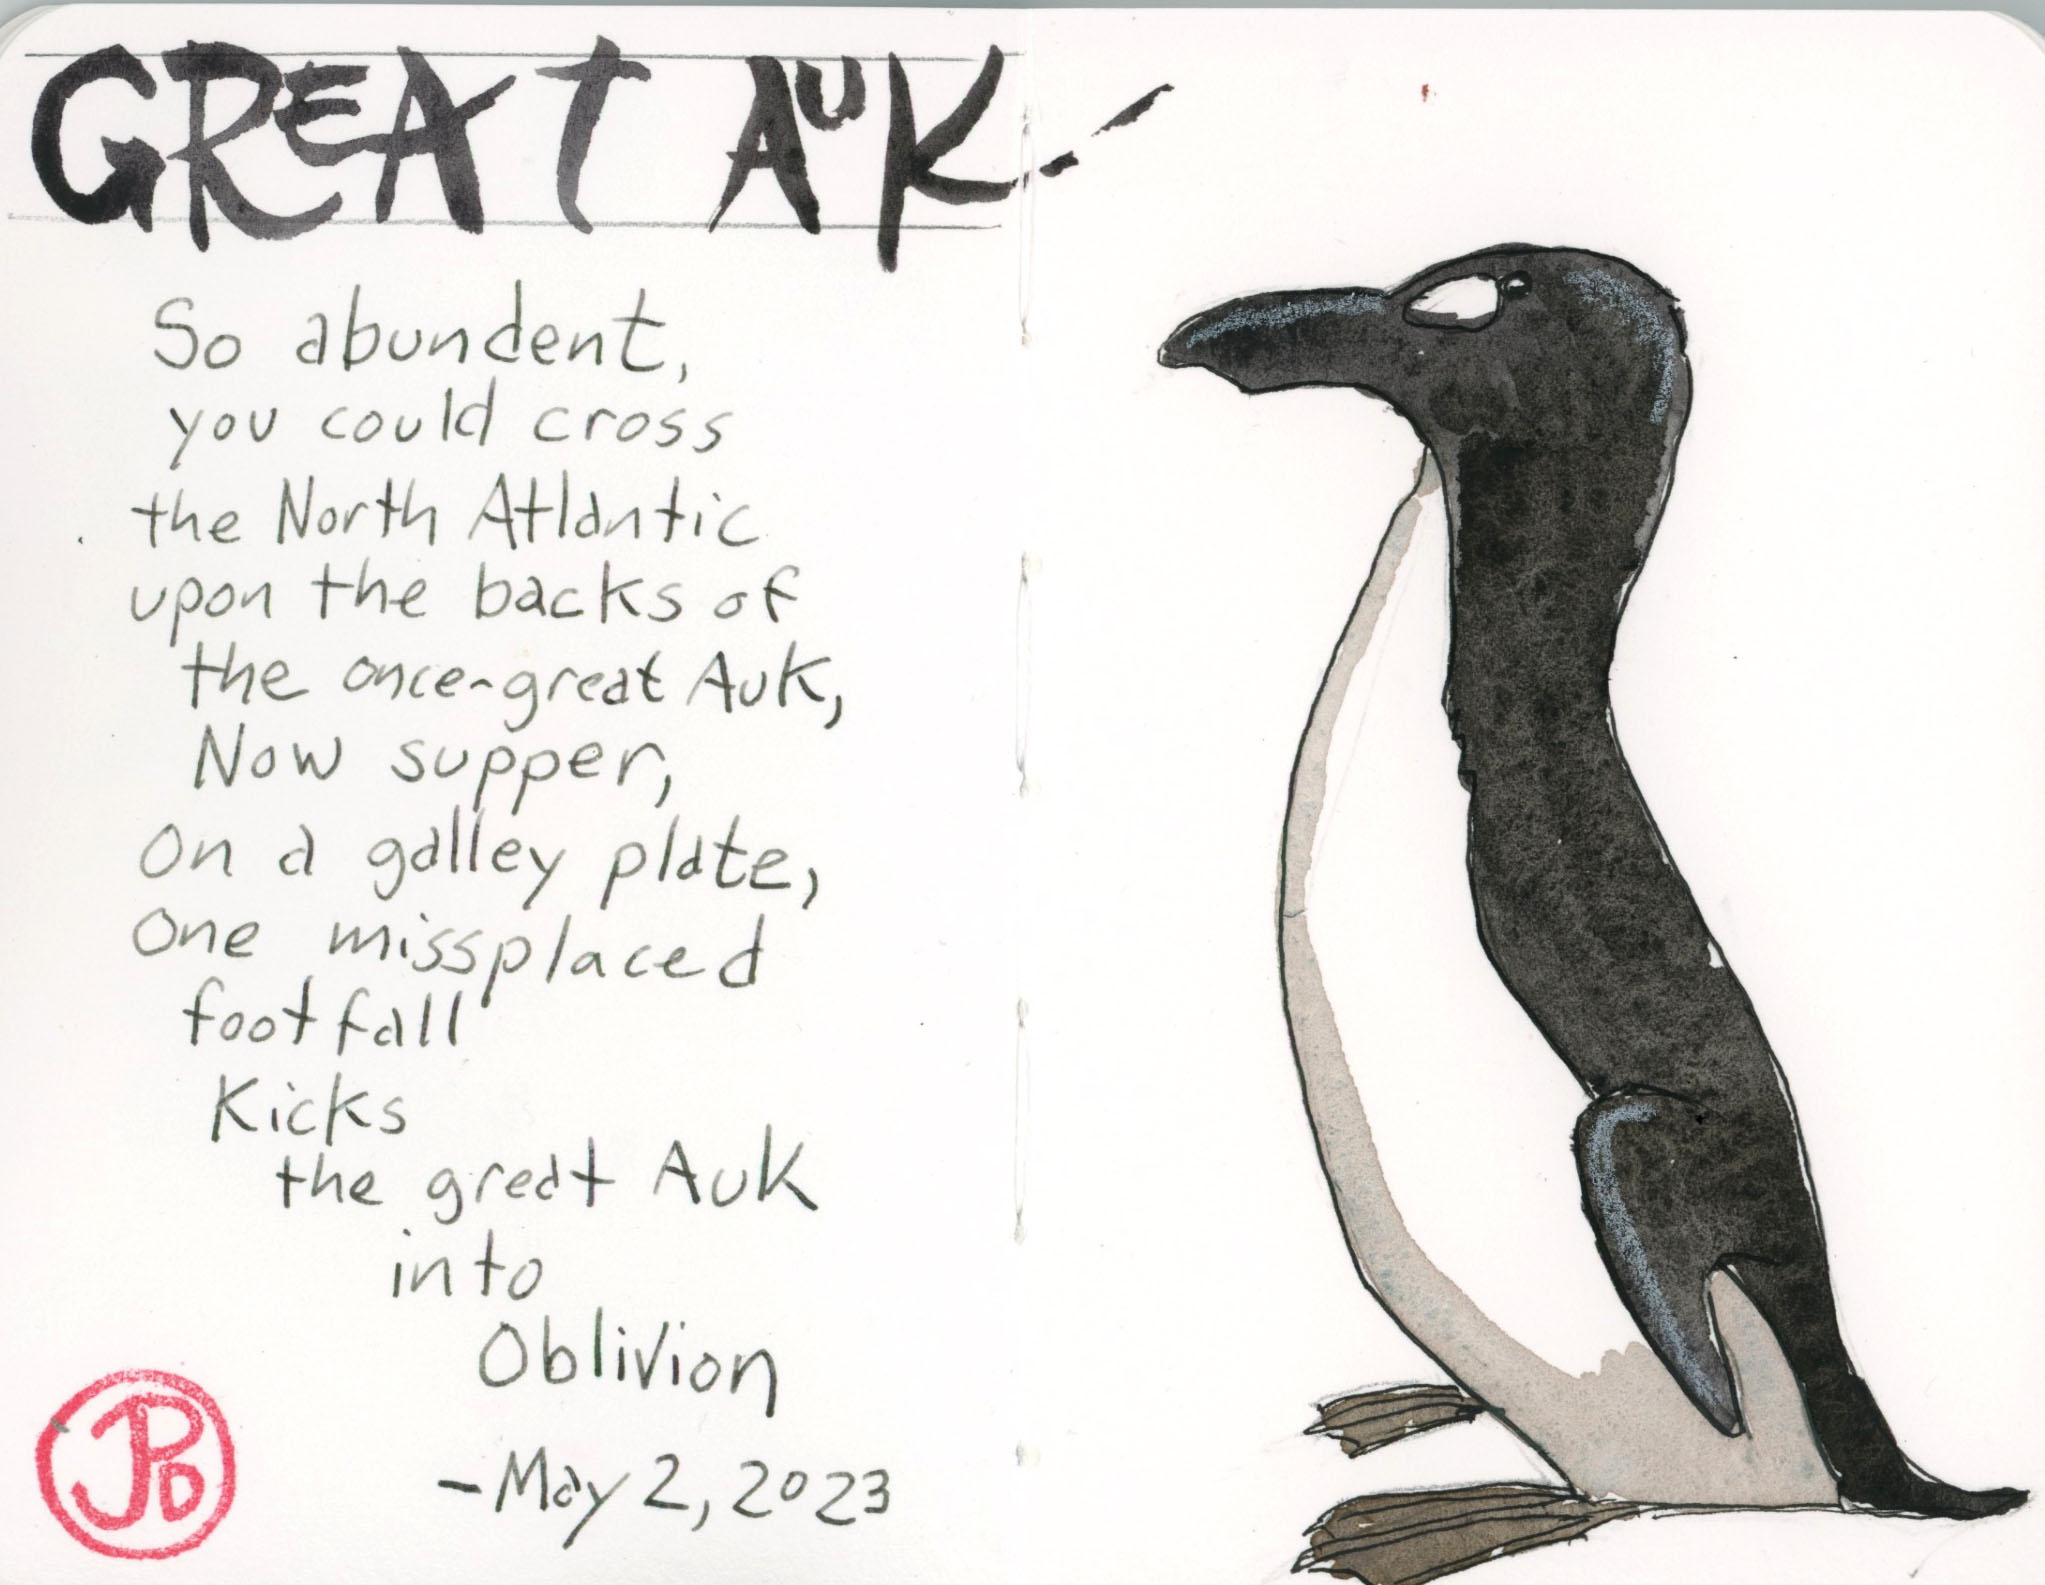 GREAT AUK
So abundent,
you could cross
the North Atlantic
upon the backs of
the once-great Auk,
Now supper,
On a galley plate,
One missplaced
footfall
Kicks
the great Auk
into
Oblivion
-May 2, 2023
JPD